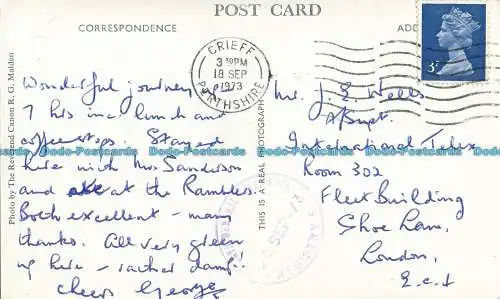 POST CARD
CORRESPONDENCE
ADD
CRIEFF
3 30PM
18 SEP
1973
PERTHSHIRE
3P
Wonderful journey
7 hrs inc. lunch and
coffee stops. Stayed
here with Mrs Sanderson
and at the Rambles.
Both excellent - many
thanks. All very green
up here - rather damp!!
Cheers George
Mr. J. E. Wells
A/Supt.
International Telex
Room 302
Fleet Building
Shoe Lane,
London,
E.C.4
Photo by The Reverend Canon R. G. Maldon
THIS IS A REAL PHOTOGRAPH
SEP 73
REGISTRY
Dodo-Postcards Dodo-Postcards Dodo-Postcards Dodo-Postcards